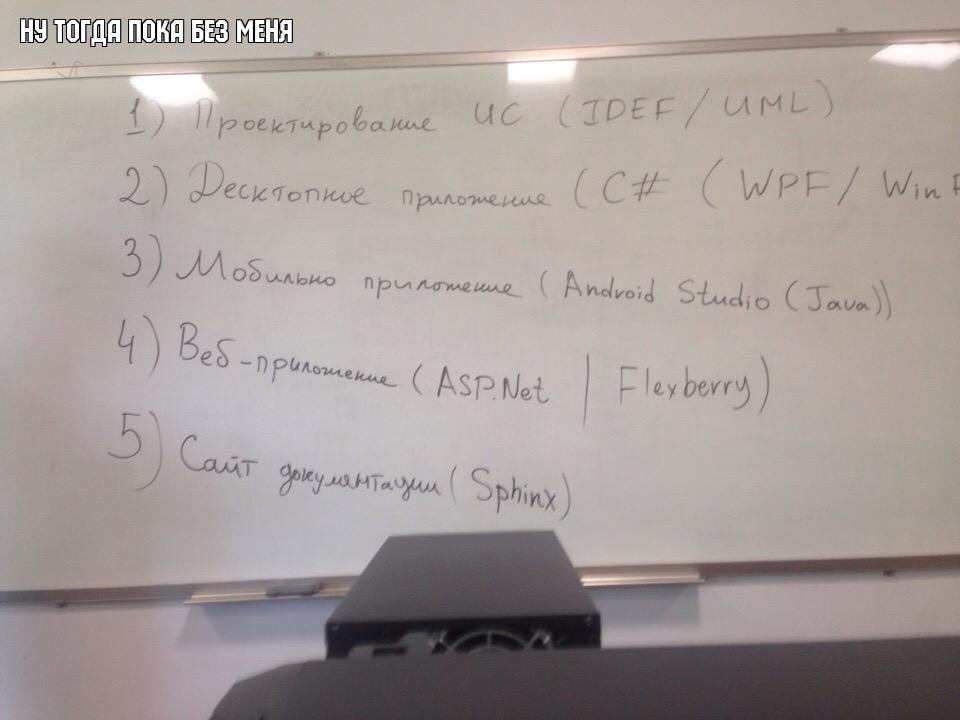 НУ ТОГДА ПОКА БЕЗ МЕНЯ
1) Проектирование ИС (IDEF / UML)
2) Десктопное приложение (C# ( WPF / Win F
3) Мобильно приложение ( Android Studio (Java))
4) Веб-приложение ( ASP.Net | Flexberry)
5) Сайт документации ( Sphinx)